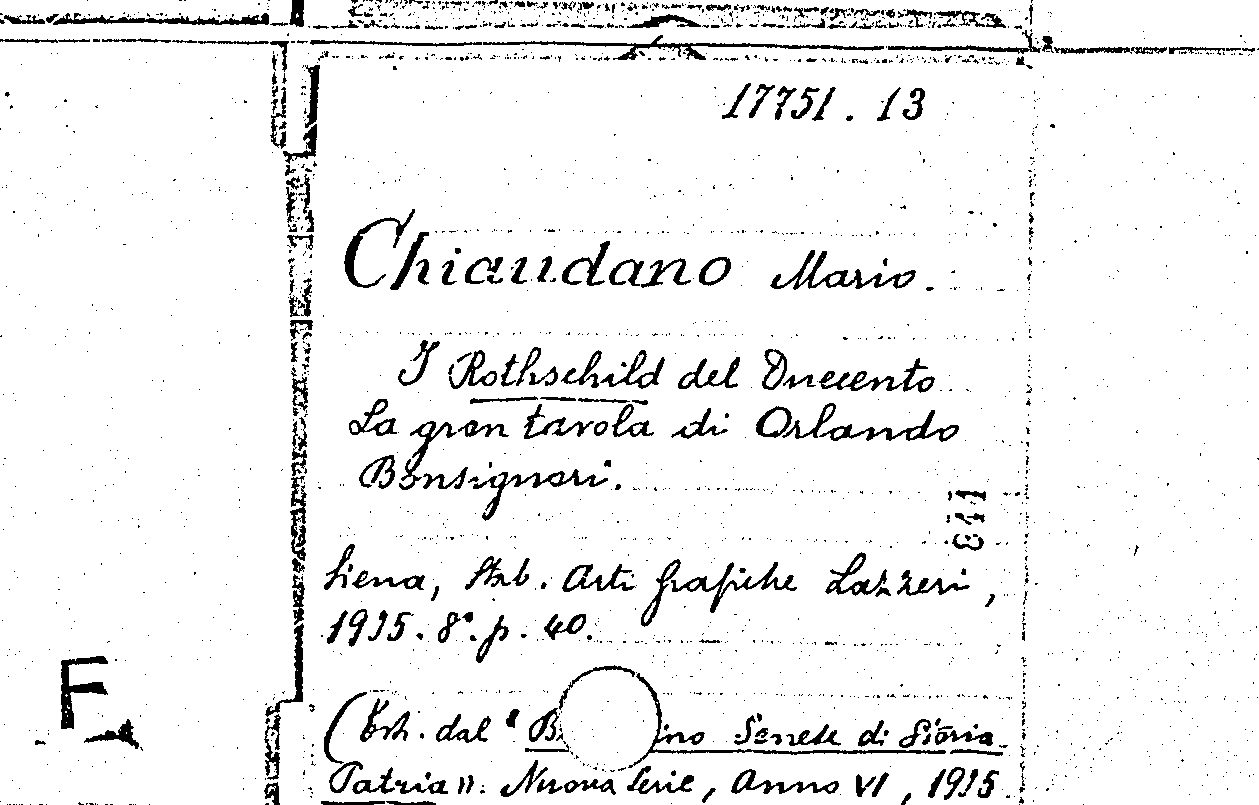 17751 . 13
Chiaudano Mario.
I Rothschild del Duecento
La gran tavola di Orlando
Bonsignori.
Siena, Stab. Arti Grafiche Lazzeri,
1935. 8°. p. 40.
F
(Estr. dal " Senese di Storia
Patria». Nuova Serie, Anno VI, 1935